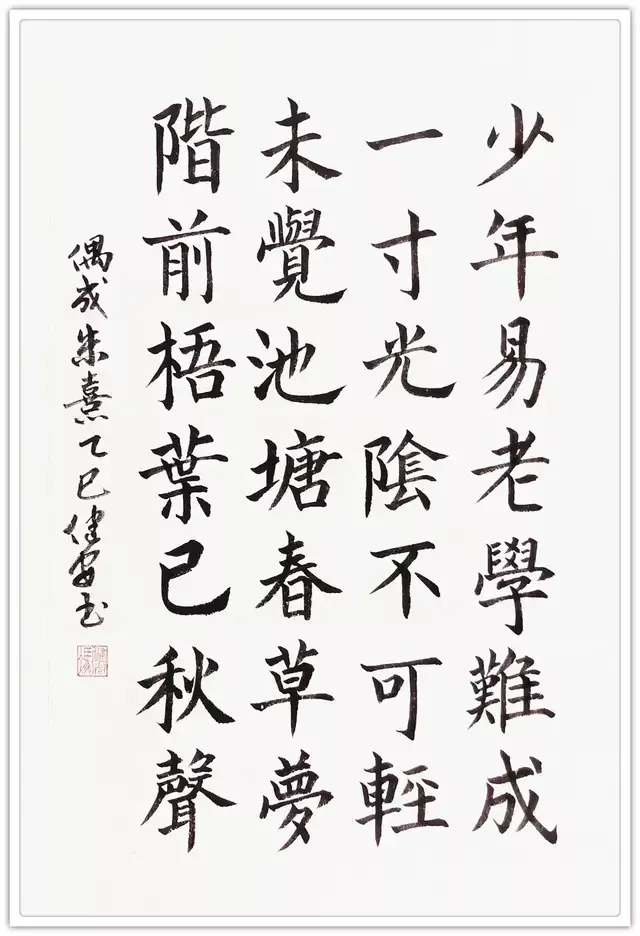 少年易老學難成
一寸光陰不可輕
未覺池塘春草夢
階前梧葉已秋聲
偶成朱熹乙巳健安书